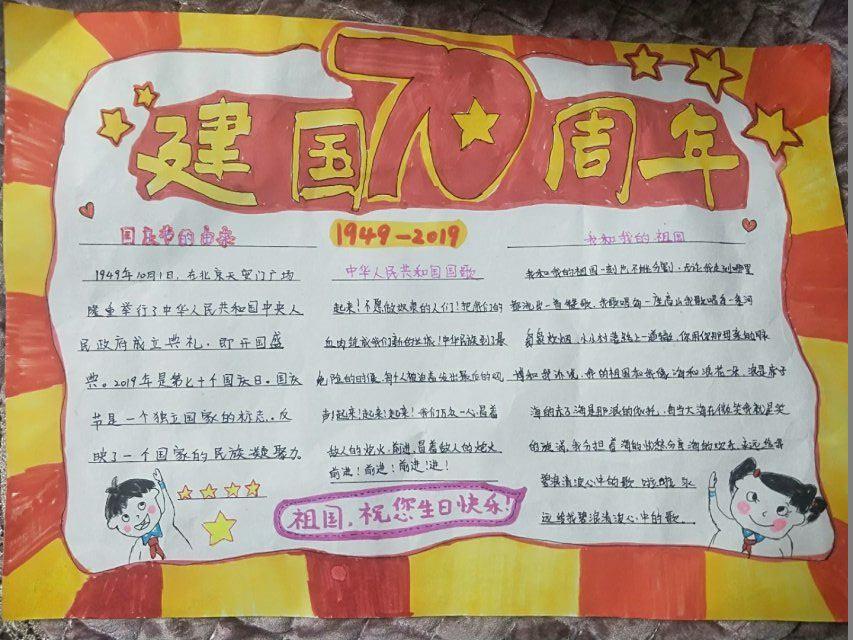 建国70周年
国庆节的由来
1949年10月1日,在北京天安门广场
隆重举行了中华人民共和国中央人
民政府成立典礼,即开国盛
典。2019年是第七十个国庆日。国庆
节是一个独立国家的标志。反
映了一个国家的民族凝聚力
1949-2019
中华人民共和国国歌
起来!不愿做奴隶的人们!把我们的
血肉筑成我们新的长城!中华民族到了最
危险的时候,每个人被迫着发出最后的吼
声!起来!起来!起来!我们万众一心,冒着
敌人的炮火,前进,冒着敌人的炮火
前进!前进!前进!进!
祖国,祝您生日快乐!
我和我的祖国
我和我的祖国一刻也不能分割,无论我走到哪里
都流出一首赞歌,我歌唱每一座高山我歌唱每一条河
袅袅炊烟,小小村落路上一道辙,你用你那母亲的脉
搏和我诉说,我的祖国和我像海和浪花一朵,浪是
海的
海是那浪的依托,每当大海在微笑我就是笑
的漩涡,我分担着海的忧愁分享海的欢乐,永远给我
碧浪清波心中的歌 啦啦 永
远给我碧浪清波心中的歌